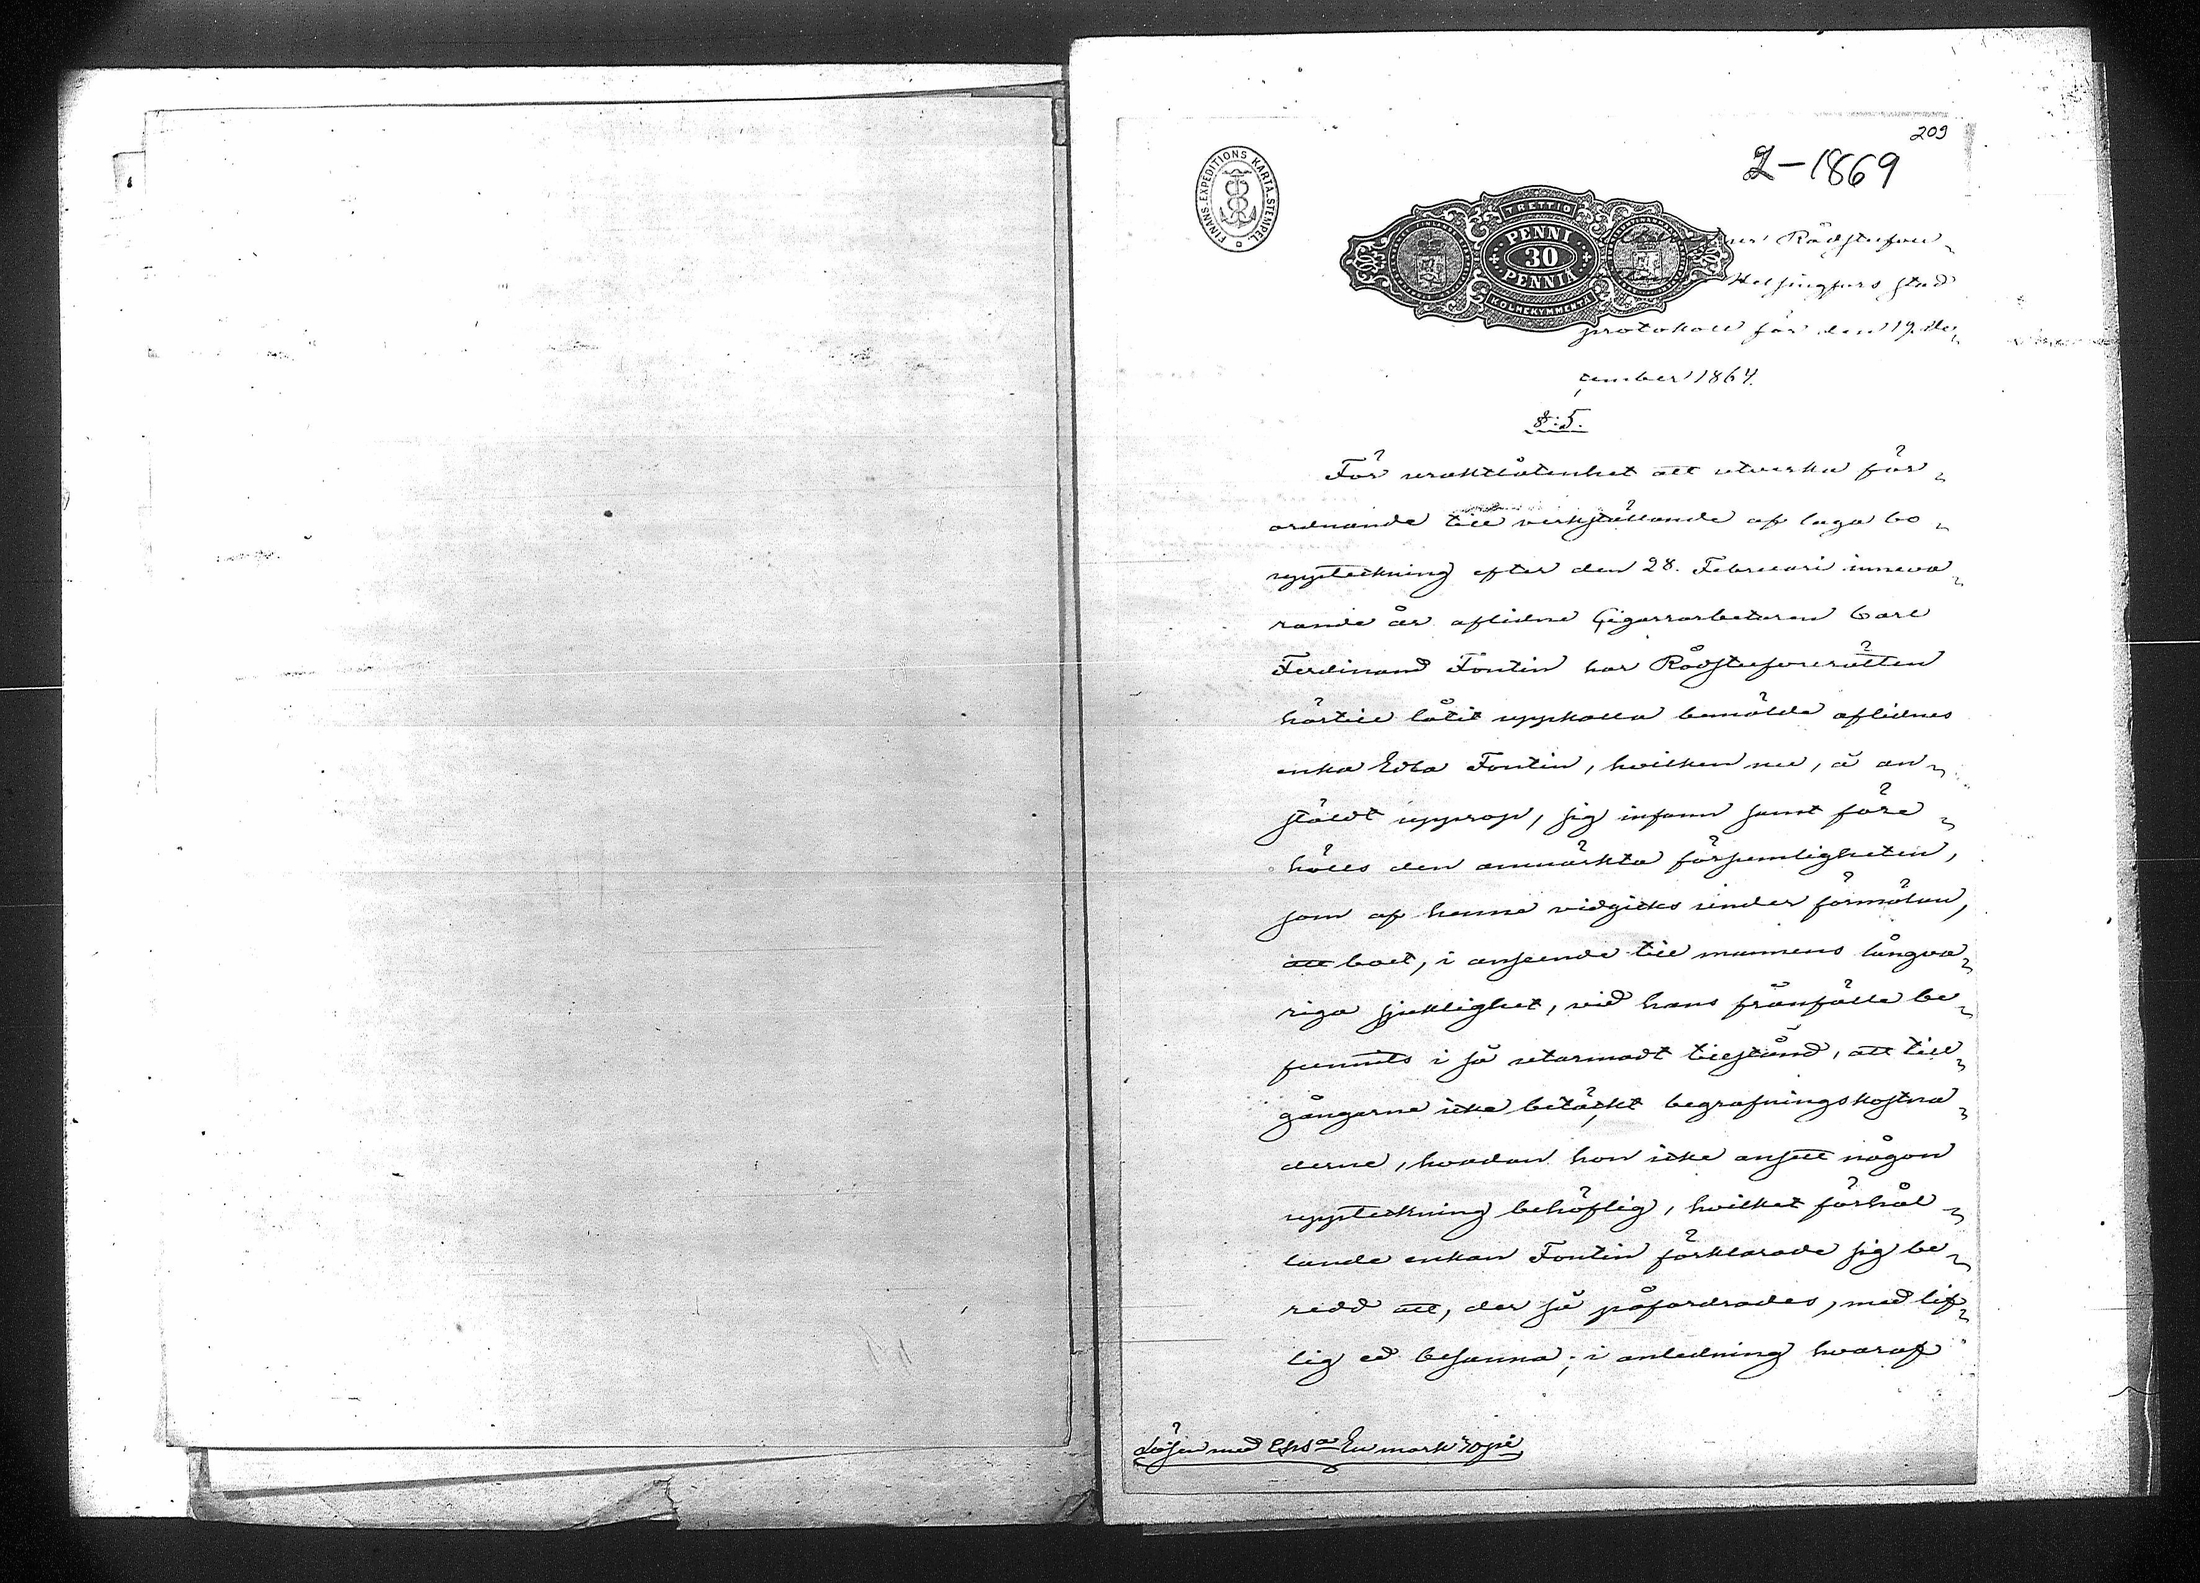 209
2-1869
FINANS-EXPEDITIONS KARTA-STEMPEL.
TRETTIO
PENNI
30
PENNIÄ
KOLMEKYMMENTÄ
Rådstufvu-
Helsingfors stad
protokoll för den 19 de-
cember 1864.
§:5.
För uraktlåtenhet att utverka för-
ordnande till verkställande af laga bo-
uppteckning efter den 28. Februari inneva-
rande år aflidne Cigarrarbetaren Carl
Ferdinand Fontin har Rådstufvurätten
härtill låtit uppkalla bemälde aflidnes
enka Edla Fontin, hvilken nu, å an-
stäldt upprop, sig infann samt före-
hölls den anmärkta försumligheten,
som af henne vidgicks under förmälan,
att boet, i anseende till mannens långva-
riga sjuklighet, vid hans frånfälle be-
funnits i så utarmadt tillstånd, att till-
gångarne icke betäckt begrafningskostna-
derne, hvadan hon icke ansett någon
uppteckning behöflig, hvilket förhål-
lande enkan Fontin förklarade sig be-
redd att, der så påfordrades, med lif-
lig ed besanna; i anledning hvaraf
Lösen med En mark